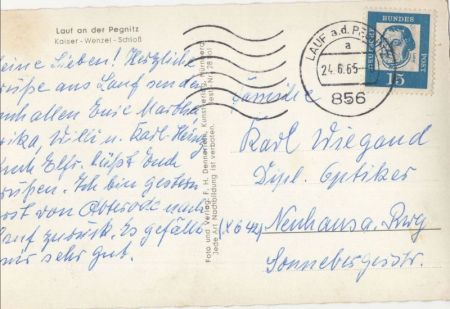 Lauf an der Pegnitz
Kaiser-Wenzel-Schloß
eine Lieben! Herzliche
rüße aus Lauf senden
uch allen Eure Martha
rika, Willi u. Karl-Heinz
uch Elfr. läßt Euch
rüßen. Ich bin gestern
ost von Abterode nach
auf zurück. Es gefällt
mir sehr gut.
Foto und Verlag: F. H. Dennerlein, Kunstverlag, Nürnberg
Jede Art Nachbildung ist verboten.
LAUF a.d. P
a
24.6.65
856
DEUTSCHE
BUNDES
POST
15
Familie
Karl Wiegand
Dipl. Optiker
(X 642) Neuhaus a. Rwg
Sonnebergerstr.